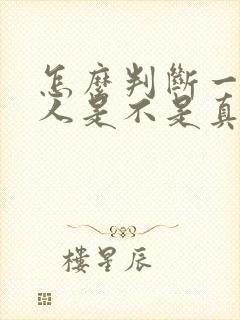 怎麼判斷一
人是不是真
樓星辰